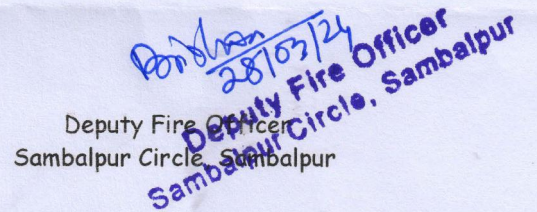 28/03/24
Deputy Fire Officer
Sambalpur Circle, Sambalpur
Deputy Fire Officer
Sambalpur Circle, Sambalpur